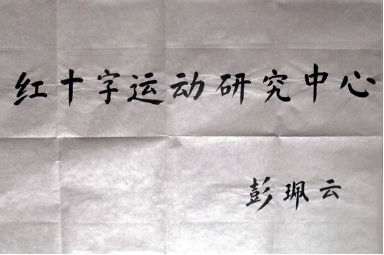 红十字运动研究中心
彭珮云